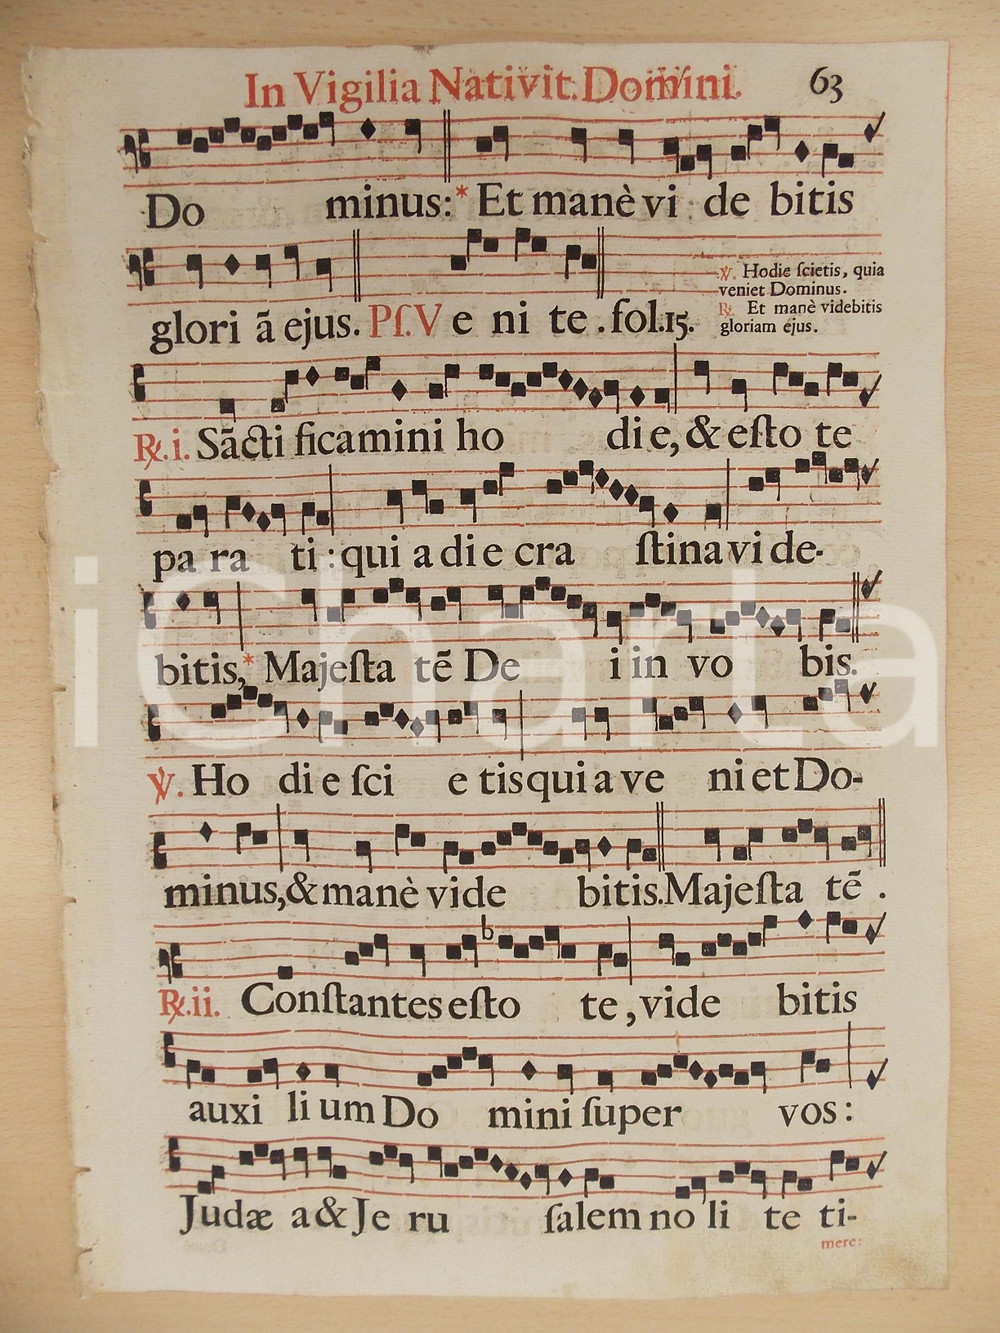 In Vigilia Nativit. Domini. 63
Do minus: * Et manè vi de bitis
glori ã ejus. Pſ. V e ni te . fol. 15.
℣. Hodie ſcietis, quia
veniet Dominus.
℟. Et manè videbitis
gloriam ejus.
℟. i. Sãcti ficamini ho di e, & eſto te
pa ra ti : qui a di e cra ſtina vi de-
bitis, * Majeſta tẽ De i in vo bis.
℣. Ho di e ſci e tis qui a ve ni et Do-
minus, & manè vide bitis. Majeſta tẽ .
b
℟. ii. Conſtantes eſto te, vide bitis
auxi li um Do mini ſuper vos :
Judæ a & Je ru ſalem no li te ti-
mere:
iCharta